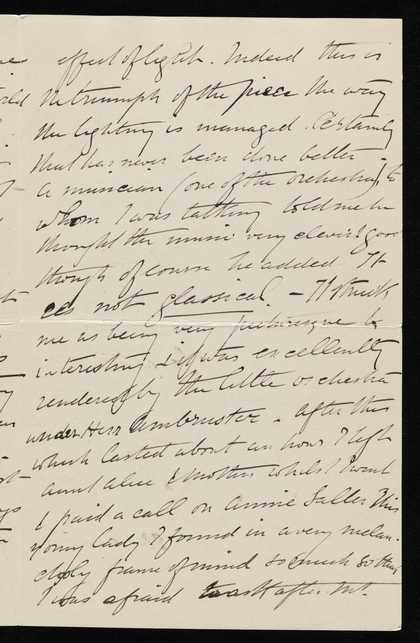 effect of light. Indeed this is
the triumph of the piece the way
the lighting is managed. Certainly
that has never been done better -
a musician (one of the orchestra) to
whom I was talking told me he
thought the music very clever & good
though of course he added "It
is not classical." - It struck
me as being very picturesque &
interesting & it was excellently
rendered by the little orchestra
under Herr Armbruster - after this
which lasted about an hour I left
aunt alice & mother whilst I went
I paid a call on Annie Salles This
young lady I found in a very melan-
choly frame of mind so much so that
I was afraid to ask after Mr.